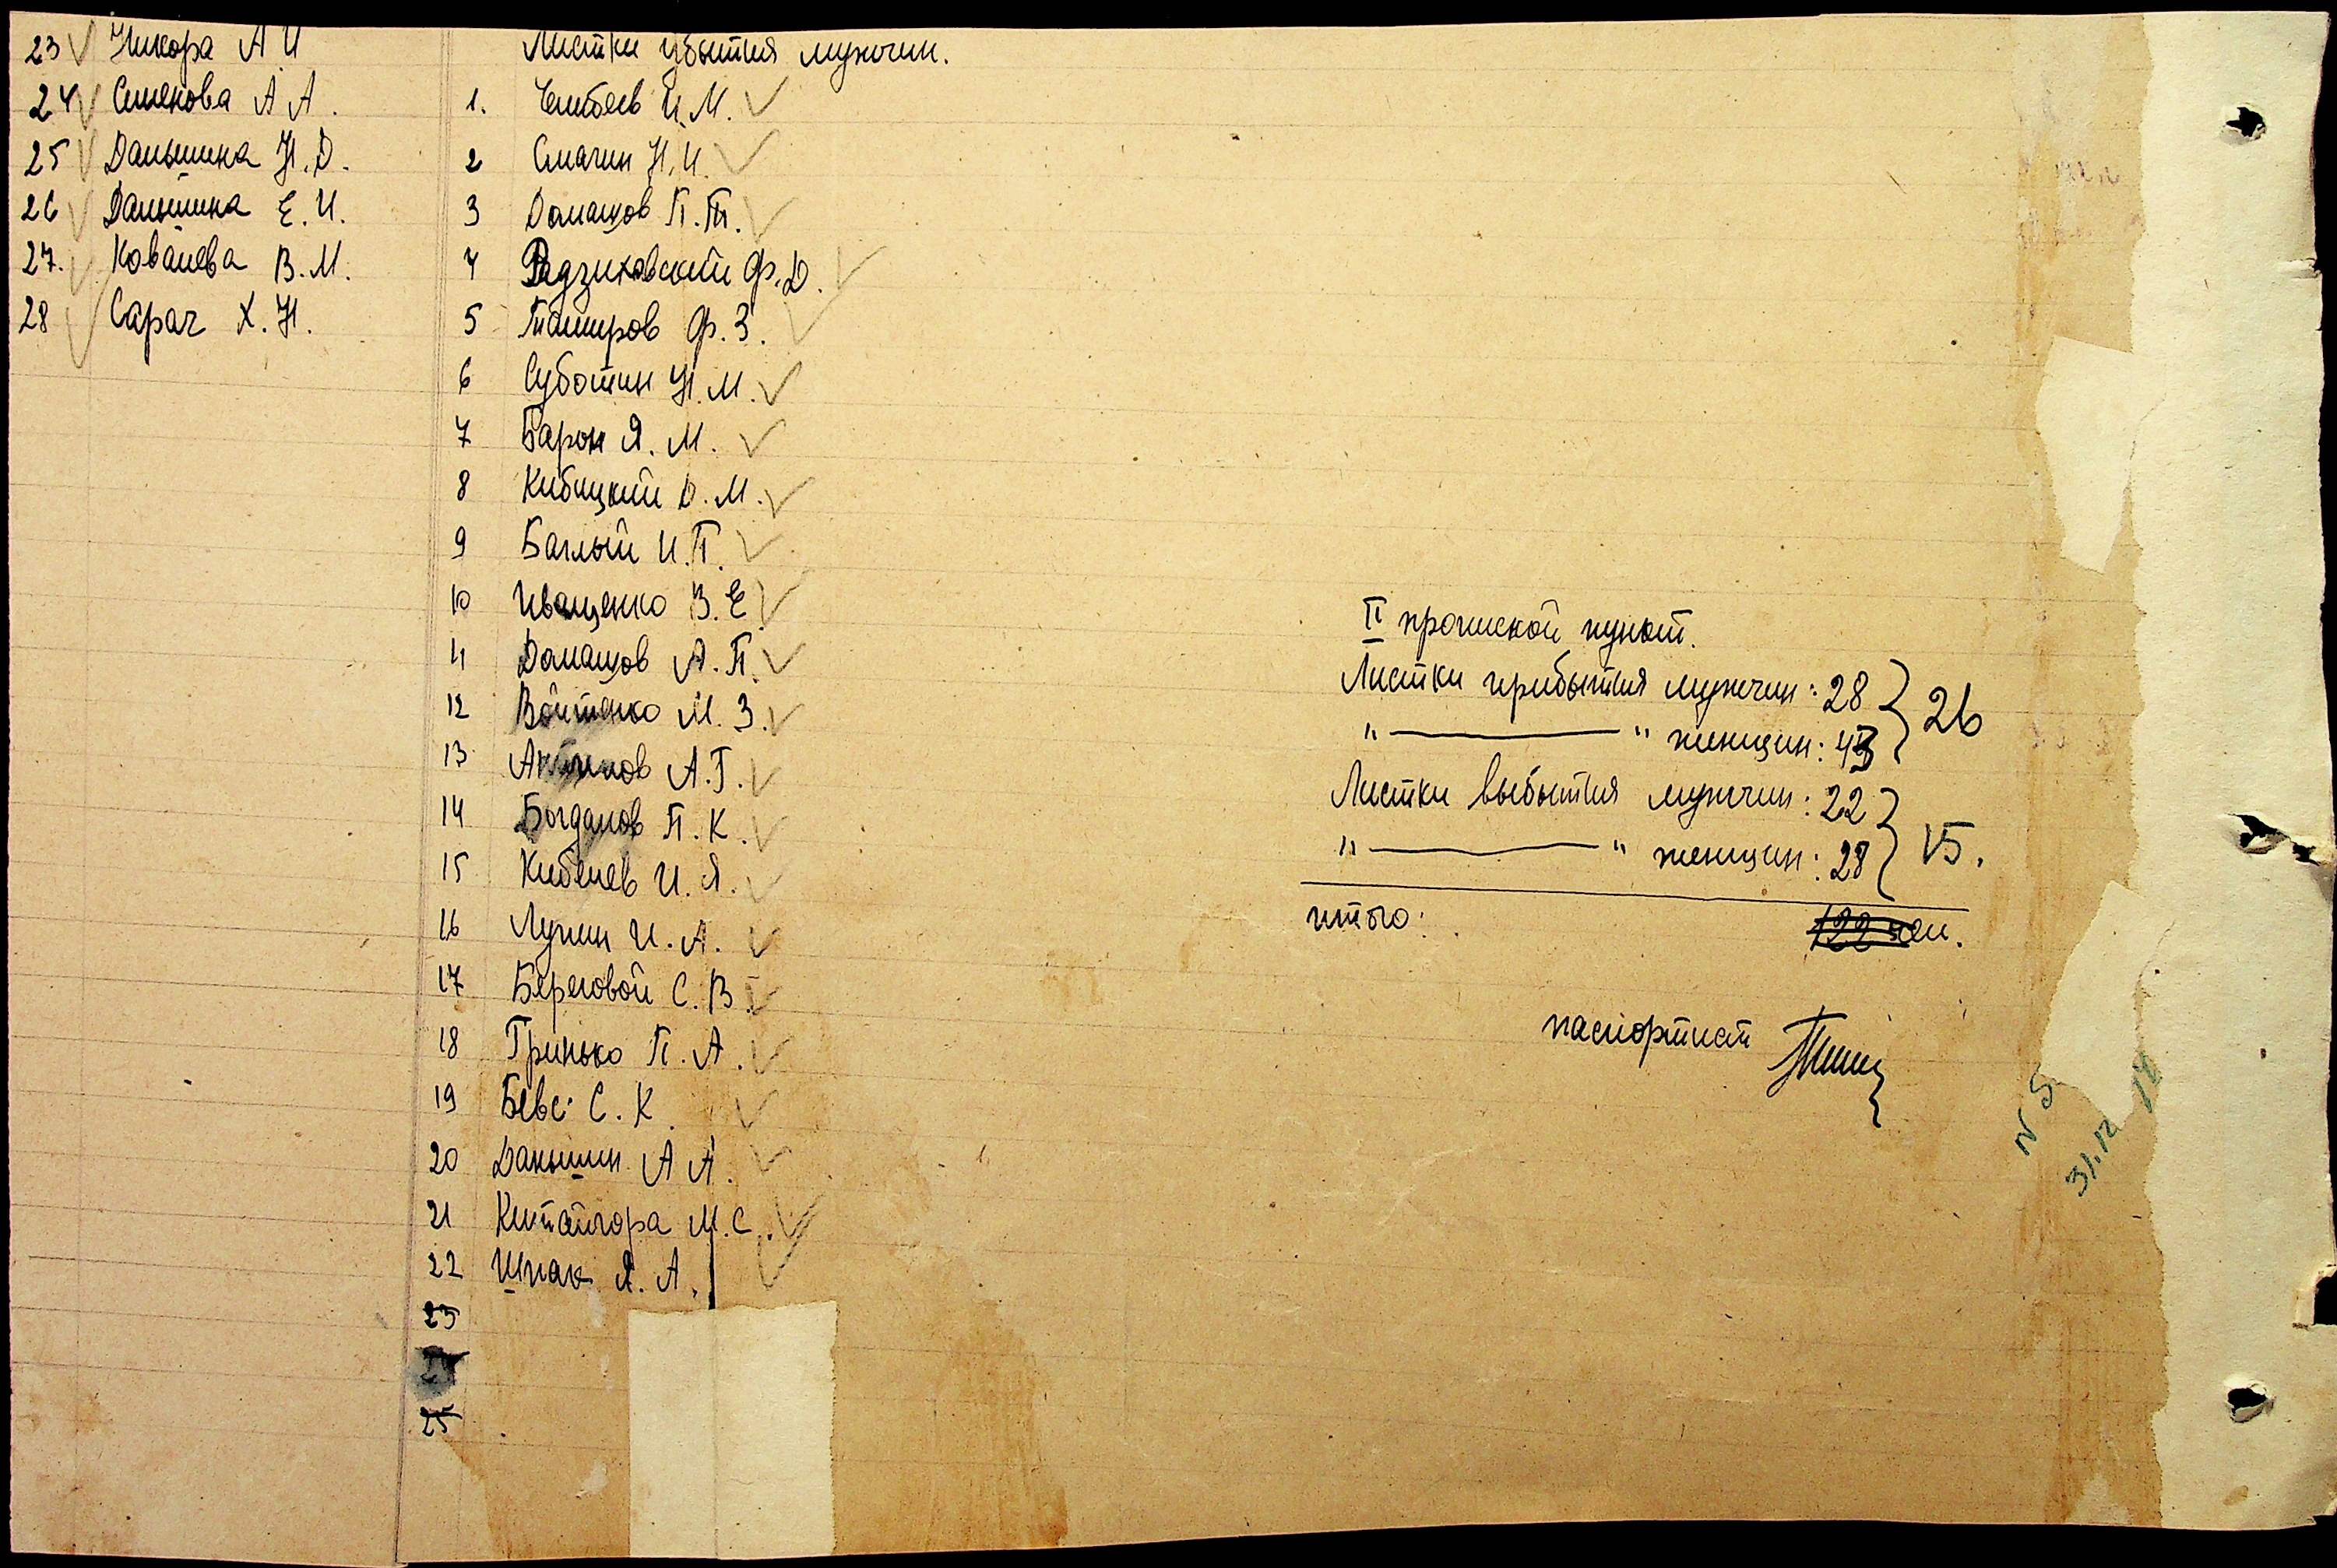 23 Никора А И
24 Симакова А А.
25 Даньшина Н.Д.
26 Даньшина Е.И.
27. Ковалева В.М.
28 Сарач Х.Н.
Листки убытия мужчин.
1. И.М.
2 Смагин Н.И.
3 Домашов П.Т.
4 Радзиховский Ф.Д.
5 Таширов Ф.З.
6 Суботин Н.М.
7 Барон Я.М.
8 Кибицкий Д.М.
9 Баглый И.П.
10 Иващенко В.Е.
11 Домашов А.П.
12 Войтенко М.З.
13 А.Г.
14 Богданов П.К.
15 И.Я.
16 Лунин И.А.
17 Береговой С.В.
18 Гринько П.А.
19 Бевс С.К.
20 Даньшин А А.
21 Китайгора М.С.
22 Шпак Я.А.
23
25
II прописной пункт.
Листки прибытия мужчин: 28
26
" — " женщин: 43
Листки выбытия мужчин: 22
" — " женщин: 28
15.
итого: 122 чел.
паспортист
N 5
31.12